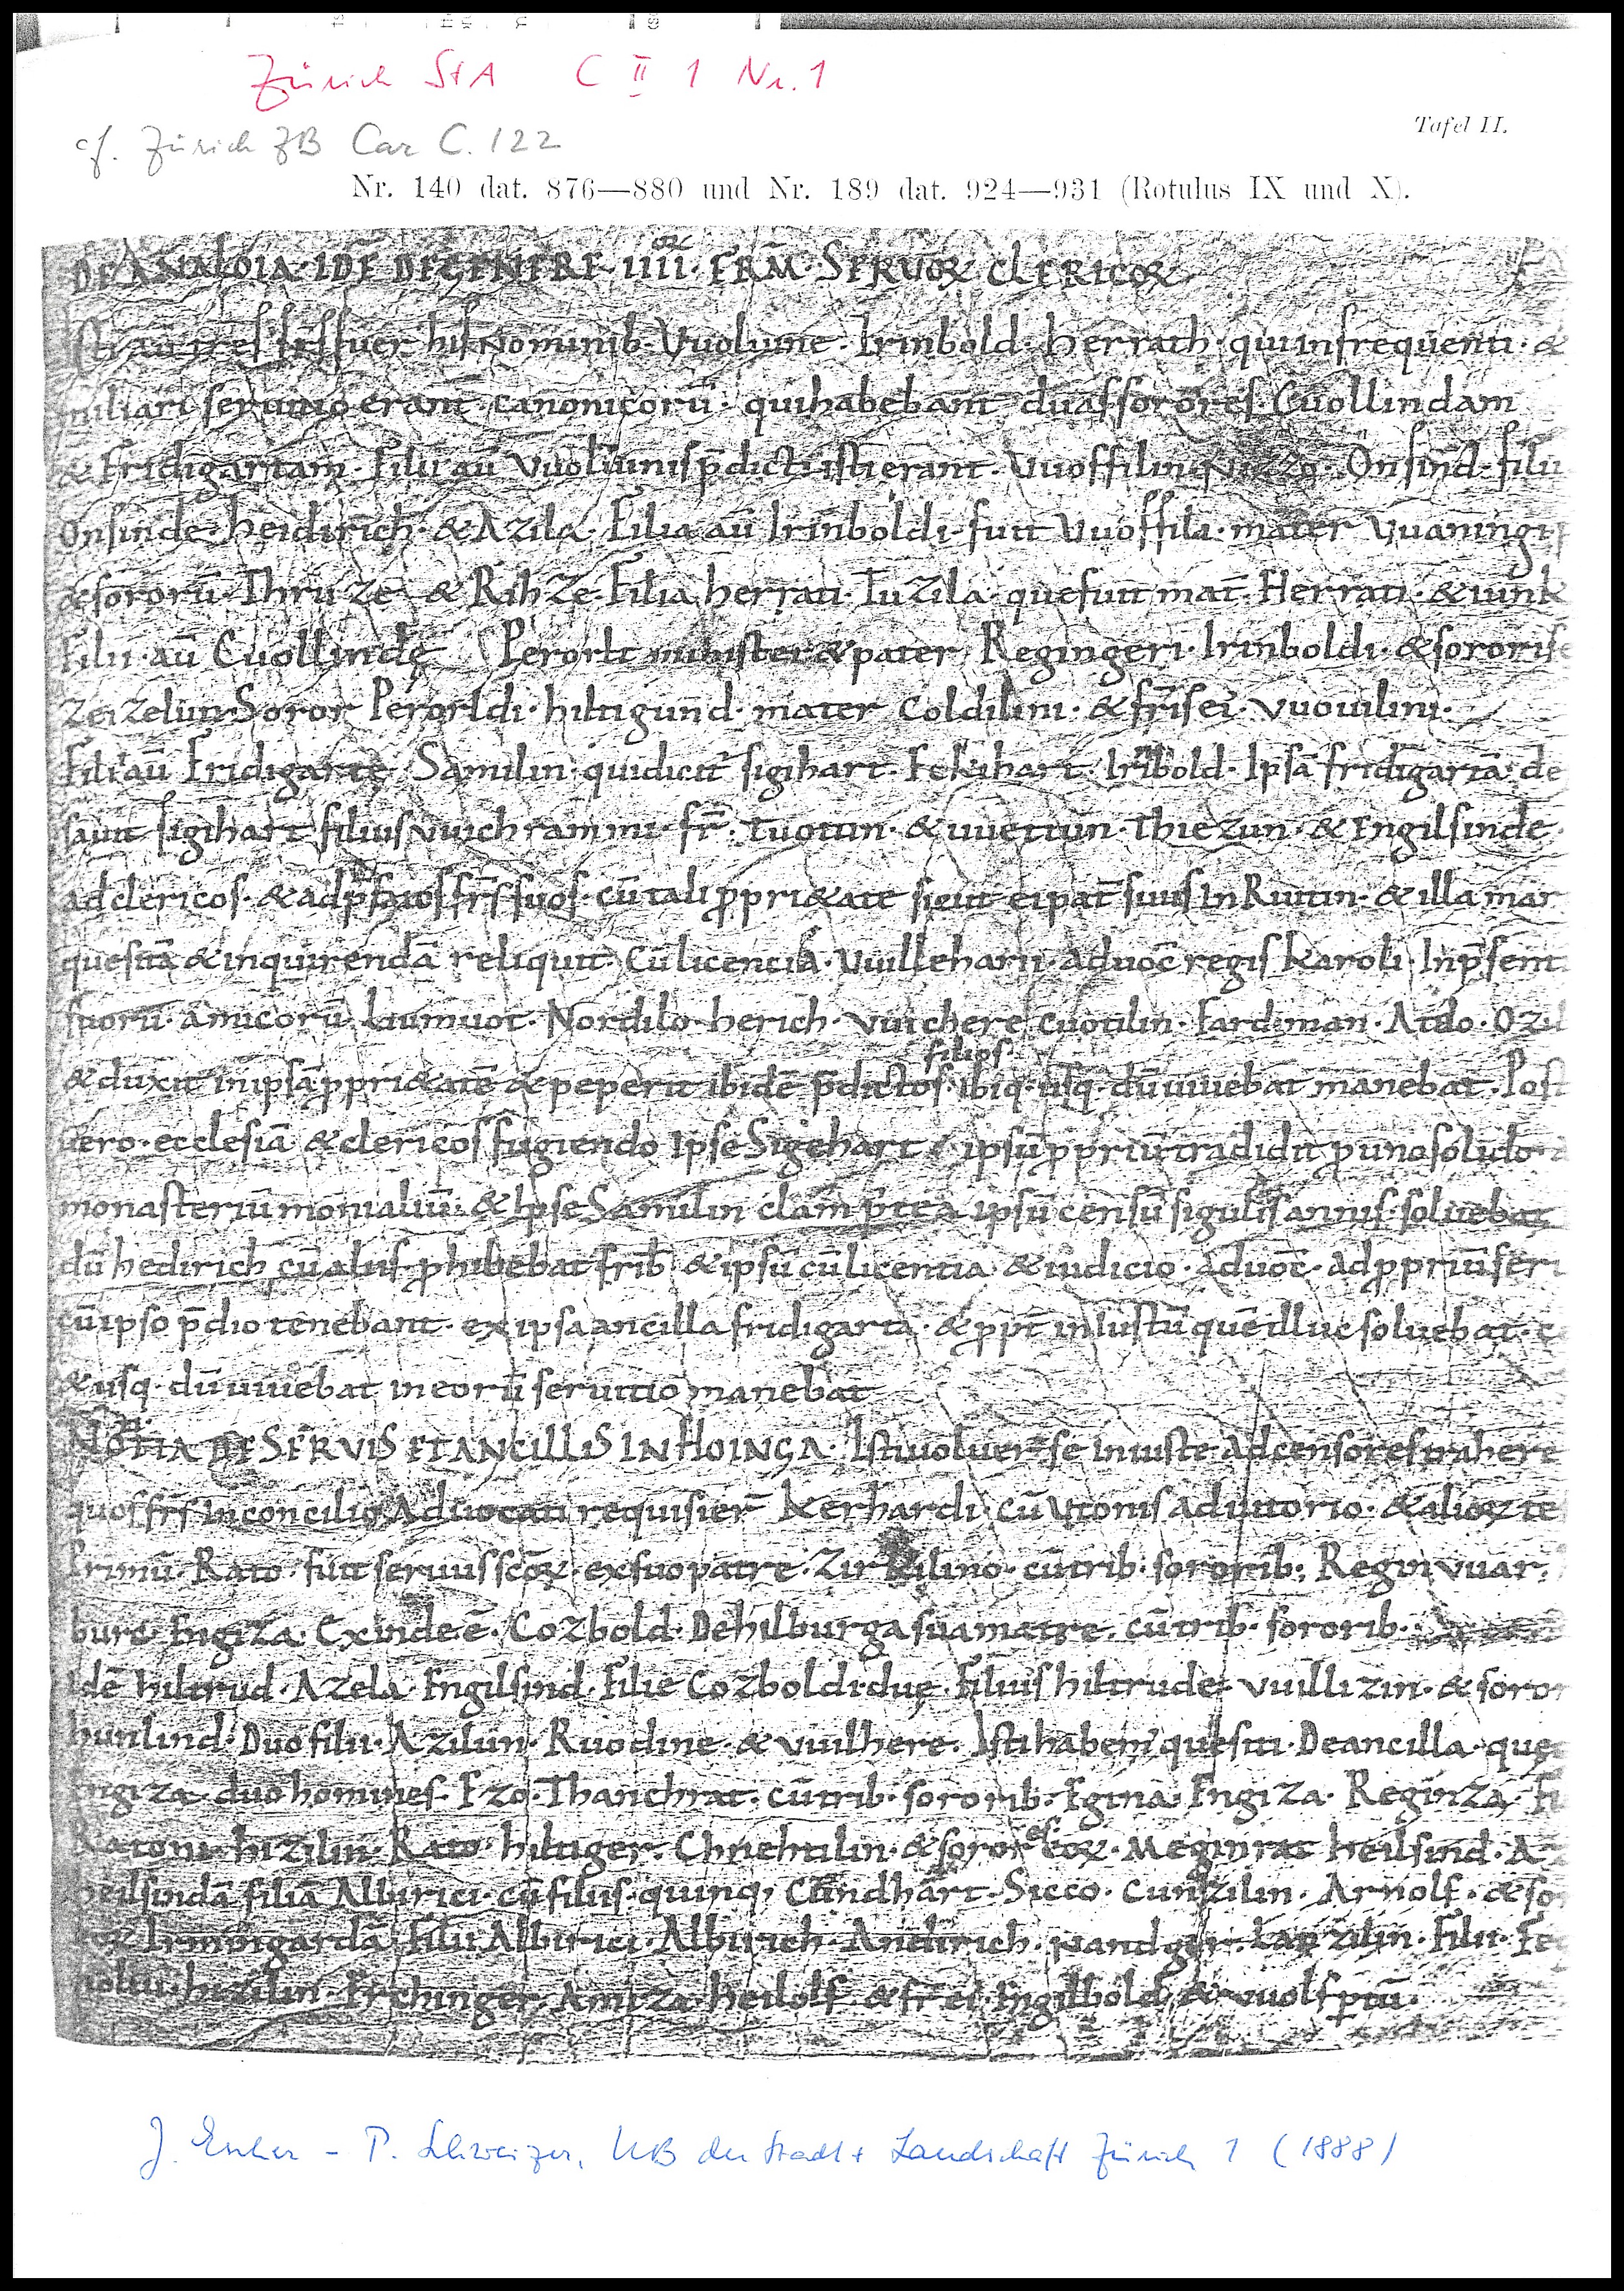 Zürich StA C II 1 Nr. 1
Tafel II.
cf. Zürich ZB Car C. 122
Nr. 140 dat. 876—880 und Nr. 189 dat. 924—931 (Rotulus IX und X).
DE ANALOIA · IDE DEGENERE · IIII · FRM̄ · SERUOꝝ CLERICOꝝ
Isti aū tres fr̄s fuer̄ his nominib · Vuoliune · Irinbold · herrath · qui infrequenti · &
miliari seruitio erant · canonicorū · qui habebant duas sorores · Cuollindam
& Fridigartam · Filii aū Vuoliunis p̄dicti isti erant · Vuoffilin · Nozzo · Onsind · filii
Onsinde · heidirich · & Azila · Filia aū Irinboldi · fuit Vuoffila · mater Vuaningi
& sororū Thruze & Rihze · Filia herrati · Tuzila · que fuit mat̄ · Herrati · & iunk
Filii · aū Cuollinde Perorlt minister & pater Regingeri · Irinboldi · & sororis
Zeizelun · Soror Perorldi · hiltigund · mater Coldilini · & fr̄is ei · Vuouilini ·
Filii aū Fridigarte Samilin · qui dicit̄ sigihart · Fekihart · Irinbold · Ipsā fridigartā · de
sauit sigihart filius vuichrammi · fr̄ · Tuotun · & uuetiun · Thiezun · & Engilsinde ·
ad clericos · & ad p̄fatos fr̄s suos · cū tali ꝓpri&ate sicut ei pat̄ suus In Riutin · & illa mar
quesitā & inquirendā reliquit · Cū licencia · Vuilleharii · aduoc̄ regis karoli · Inp̄sent
suorū · amicorū Liumuot · Nordilo · herich · Vuichere Cuotilin · Fardiman · Atdo · Ozil
filios ·
& duxit in ipsā ꝓpri&atē & peperit ibidē p̄dictos · ibiq · usq · dū uiuebat manebat · Post
uero · ecclesiā & clericos fugiendo Ipse Sigehart & ipsū ꝓpriū tradidit ꝓ uno solido
monasteriū monialiū · & Ipse Samilin clam p̄tea ipsū censū sigulis annis · soluebat
dū hedirich cū aliis ꝓhibebat frib̄ & ipsū cū licentia & iudicio · aduoc̄ · ad ꝓpriū ser
cū ipso p̄dio tenebant · ex ipsa ancilla fridigarta · & ꝓpt̄ iniustū quē illuc soluebat ·
& usq · dū uiuebat in eorū seruitio manebat
NOTITIA DE SERVIS ET ANCILLIS IN HOINGA · Isti uoluer̄ se iniuste ad censores trahere
quos fr̄s in concilio Aduocati requisier̄ Kerhardi · cū Vtonis adiutorio · & alioꝝ te
Primū · Rato · fuit seruus scōꝝ · ex suo patre · Zirkilino · cū trib · sororib; Reginvuar ·
burc Engiza · Exinde ē · Cozbold · De hilburga sua matre · cū trib · sororib ·
Idē hiltrud · Azela · Engilsind · Filie Cozboldi · due · Filius hiltrude · vuillizin · & soror
hunlind · Duo filii · Azilun · Ruodine & vuilhere · Isti habent̄ quesiti · De ancilla · que
Engiza · duo homines · Ezo · Thanchrat · cū trib · sororib · Egina · Engiza · Reginza · Fi
Ratoni · hizilin · Rato · hiltiger · Chnehtilin · & sorores eoꝝ · Meginrat heilsind · Az
heilsindā filiā Alburici · cū filiis · quinq, Cundhart · Sicco · Cunzilin · Arnolf · & so
eoꝝ Irmingardā · Filii Alburici · Alburich · Andirich · Nandger · Lanzilin · Filii ·
hizilin · Erchinger · Amiza · heilolf & fr̄ ei · Engilbold & vuolfp̄tū ·
J. Escher – P. Schweizer, UB der Stadt + Landschaft Zürich 1 (1888)